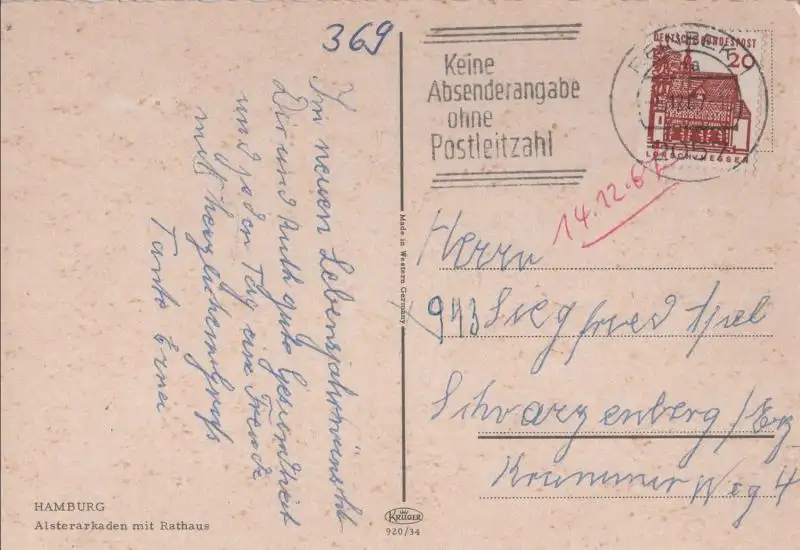 369
Im neuen Lebensjahr wünscht
Dir und Ruth gute Gesundheit
und jeden Tag eine Freude
mit herzlichem Gruß
Tante Erna
HAMBURG
Alsterarkaden mit Rathaus
Made in Western Germany
KRÜGER
920/34
Keine
Absenderangabe
ohne
Postleitzahl
DEUTSCHE BUNDESPOST
20
LORSCH/HESSEN
14.12.67
Herrn
943 Siegfried
Schwarzenberg/Erz
Krummer Weg 4